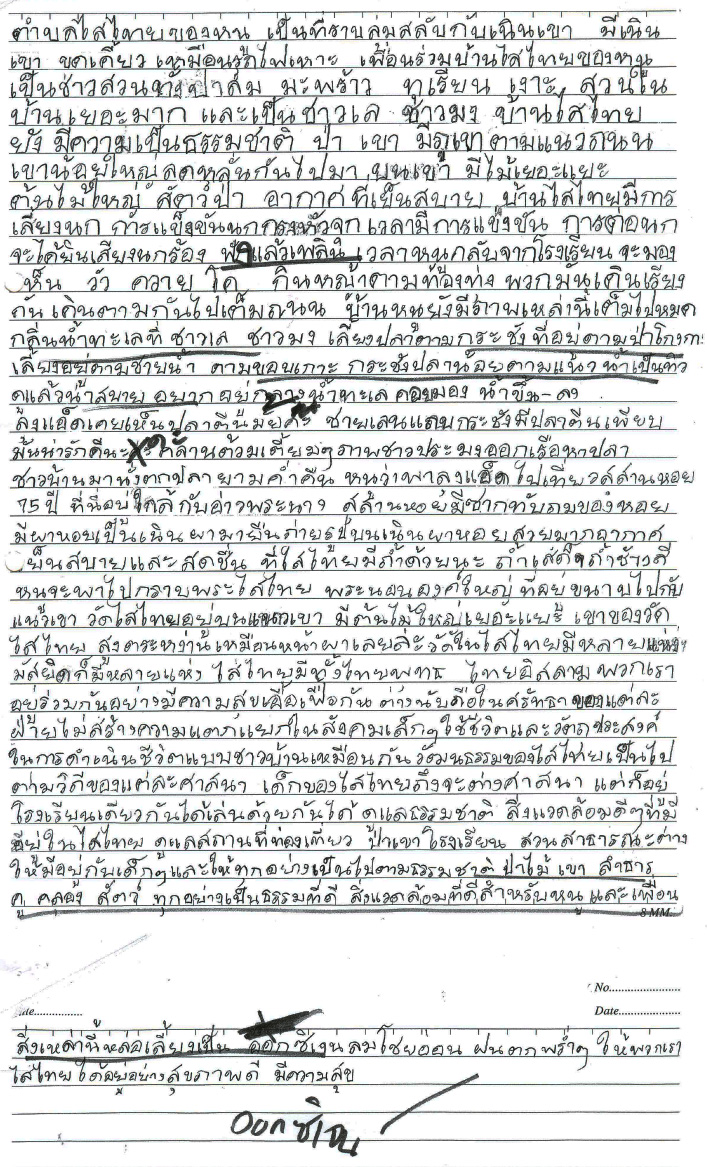 ตำบลไสไทยของหนู เป็นที่ราบลุ่มสลับกับเนินเขา มีเนิน
เขา ขดเคี้ยว เหมือนรถไฟเหาะ เพื่อนร่วมบ้านไสไทยของหนู
เป็นชาวสวนทั้งปาล์ม มะพร้าว ทุเรียน เงาะ สวนใน
บ้านเยอะมาก และเป็นชาวเล ชาวมง บ้านไสไทย
ยัง มีความเป็นธรรมชาติ ป่า เขา มีภูเขาตามแนวถนน
เขาน้อยใหญ่ลดหลั่นกันไปมา บนเขา มีไม้เยอะแยะ
ต้นไม้ใหญ่ สัตว์ป่า อากาศที่เย็นสบาย บ้านไสไทยมีการ
เลี้ยงนก การแข็งขันนกกรงหัวจุก เวลามีการแข่งขัน การต่อนก
จะได้ยินเสียงนกร้อง ฟังแล้วเพลิน เวลาหนูกลับจากโรงเรียน จะมอง
เห็น วัว ควาย โค กินหญ้าตามท้องทุ่ง พวกมันเดินเรียง
กัน เดินตามกันไปเต็มถนน บ้านหนูยังมีภาพเหล่านี้เต็มไปหมด
กลิ่นน้ำทะเลที่ ชาวเล ชาวมง เลี้ยงปลาตามกระชังที่อยู่ตามป่าโกงกาง
เลี้ยงอยู่ตามชายน้ำ ตามขอบเกาะ กระชังปลาน้อยตามแนวน้ำเป็นทิว
ดูแล้วน้ำสบาย อยากอยู่กลางน้ำทะเล คอยมอง น้ำขึ้น-ลง
ลุงแอ็ดเคยเห็นปลาตีนมั้ยคะ ชายเลนแถบกระชังมีปลาตีนเพียบ
มันน่ารักดีนะคะ คลานต้วมเตี้ยมๆภาพชาวประมงออกเรือหาปลา
ชาวบ้านมานั่งตกปลายามค่ำคืน หนูว่าพาลุงแอ็ดไปเที่ยวสุสานหอย
75 ปี ที่นี่อยู่ใกล้กับอ่าวพระนาง สุสานหอยมีซากทับถมของหอย
มีผาหอยเป็นเนินผามายืนถ่ายรูปบนเนินผาหอยสวยมากอากาศ
เย็นสบายและสดชื่น ที่ไสไทยมีถ้ำด้วยนะ ถ้ำเสด็จถ้ำช้างสี
หนูจะพาไปกราบพระไสไทย พระนอนองค์ใหญ่ ที่อยู่ขนาบไปกับ
แนวเขา วัดไสไทยอยู่บนแนวเขา มีต้นไม้ใหญ่เยอะแยะ เขาของวัด
ไสไทย สูงตระหง่านเหมือนหน้าผาเลยล่ะวัดในไสไทยมีหลายแห่ง
มัสยิดก็มีหลายแห่ง ไสไทยมีทั้งไทยพุทธ ไทยอิสลามพวกเรา
อยู่ร่วมกันอย่างมีความสุขเอื้อเฟื้อกัน ต่างนับถือในศรัทธาของแต่ละ
ฝ่ายไม่สร้างความแตกแยกในสังคมเล็กๆใช้ชีวิตและวัตถุประสงค์
ในการดำเนินชีวิตแบบชาวบ้านเหมือนกัน วัฒนธรรมของไสไทยเป็นไป
ตามวิถีของแต่ละศาสนา เด็กของไสไทยถึงจะต่างศาสนา แต่ก็อยู่
โรงเรียนเดียวกันได้เล่นด้วยกันได้ ดูแลธรรมชาติ สิ่งแวดล้อมดีๆที่มี
อยู่ในไสไทย ดูแลสถานที่ท่องเที่ยว ป่าเขาโรงเรียน สวนสาธารณะต่าง
ให้มีอยู่กับเด็กๆและให้ทุกอย่างเป็นไปตามธรรมชาติ ป่าไม้ เขา ลำธาร
คู คลอง สัตว์ ทุกอย่างเป็นธรรมที่ดี สิ่งแวดล้อมที่ดีสำหรับหนูและเพื่อน
8 MM.
No.
Date
สิ่งเหล่านี้หล่อเลี้ยงเป็น ออกซิเจน ลมโชยอ่อน ฝนตกพรำๆ ให้พวกเรา
ไสไทยได้อยู่อย่างสุขภาพดี มีความสุข
ออกซิเจน